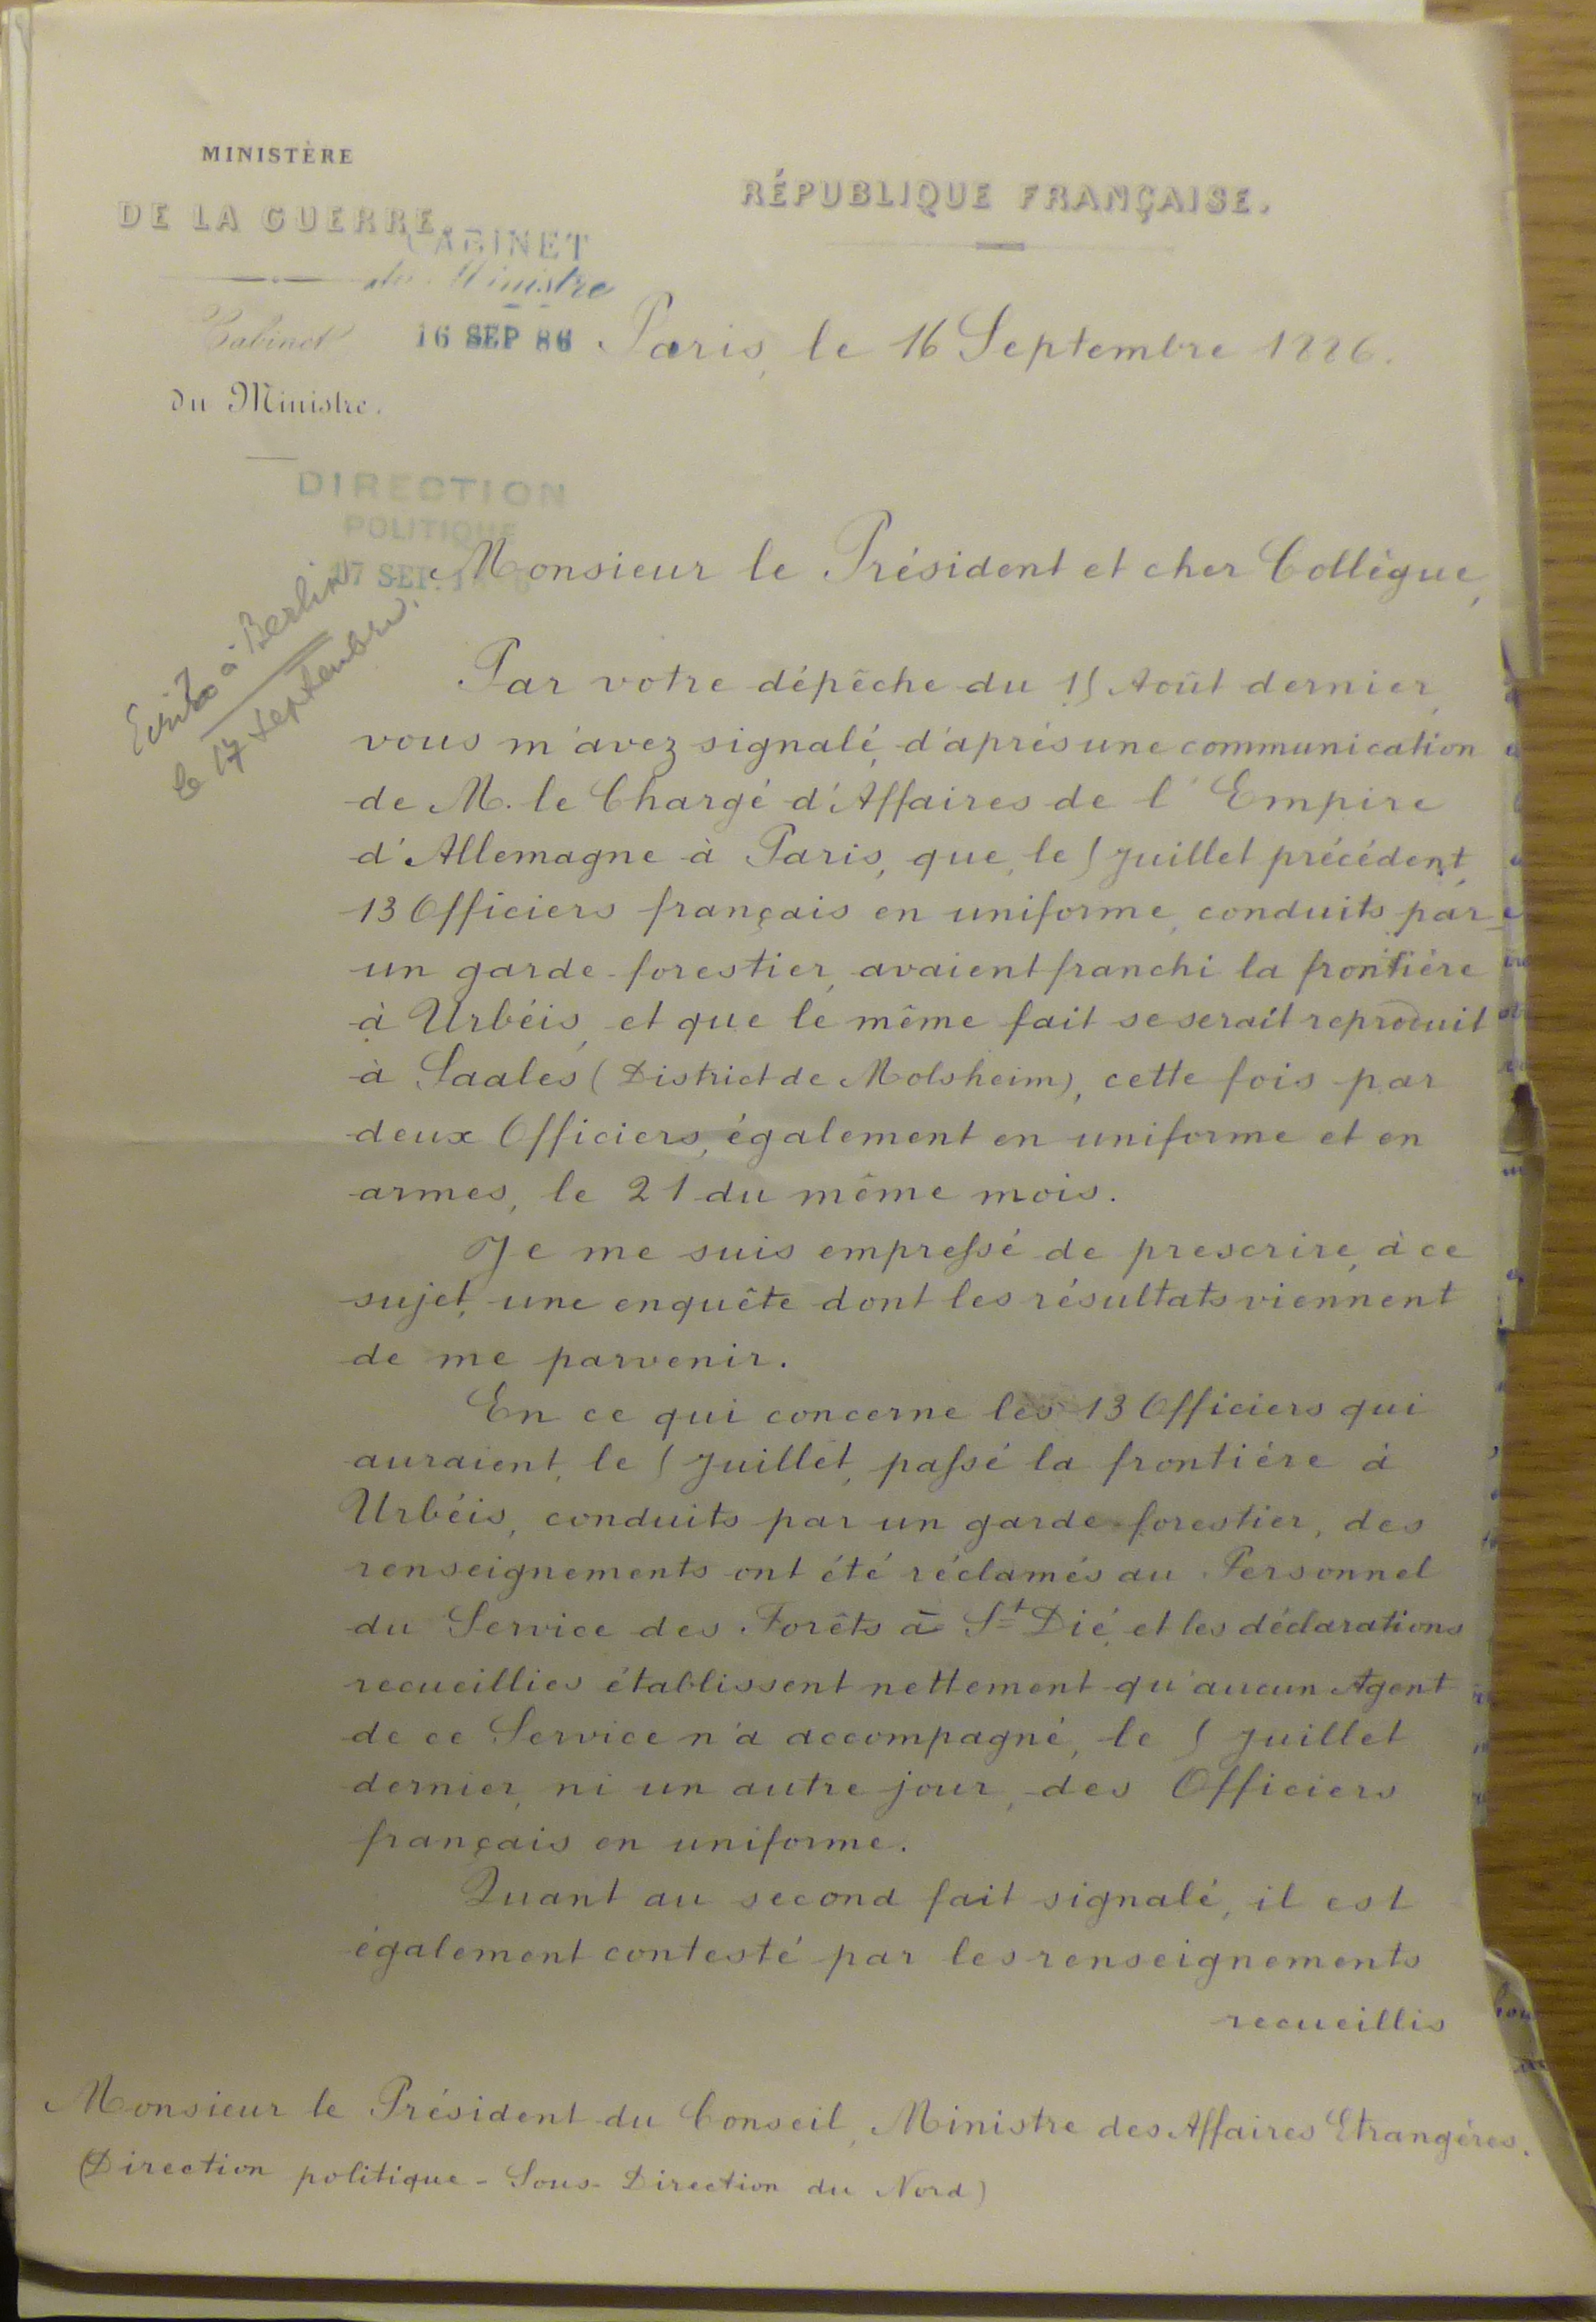 MINISTÈRE
DE LA GUERRE.
RÉPUBLIQUE FRANÇAISE.
CABINET
du Ministre
16 SEP 86
Cabinet
du Ministre.
Paris, le 16 Septembre 1886.
DIRECTION
POLITIQUE
17 SEP.
Ecrit à Berlin
le 17 septembre.
Monsieur le Président et cher Collègue,
Par votre dépêche du 15 Août dernier,
vous m'avez signalé, d'après une communication
de M. le Chargé d'Affaires de l'Empire
d'Allemagne à Paris, que, le 5 Juillet précédent,
13 Officiers français en uniforme, conduits par
un garde-forestier, avaient franchi la frontière
à Urbéis, et que le même fait se serait reproduit
à Saales (District de Molsheim), cette fois par
deux Officiers, également en uniforme et en
armes, le 21 du même mois.
Je me suis empressé de prescrire, à ce
sujet, une enquête dont les résultats viennent
de me parvenir.
En ce qui concerne les 13 Officiers qui
auraient, le 5 Juillet, passé la frontière à
Urbéis, conduits par un garde-forestier, des
renseignements ont été réclamés au Personnel
du Service des Forêts à St Dié, et les déclarations
recueillies établissent nettement qu'aucun Agent
de ce Service n'a accompagné, le 5 Juillet
dernier, ni un autre jour, des Officiers
français en uniforme.
Quant au second fait signalé, il est
également contesté par les renseignements
recueillis
Monsieur le Président du Conseil, Ministre des Affaires Etrangères.
(Direction politique - Sous-Direction du Nord)